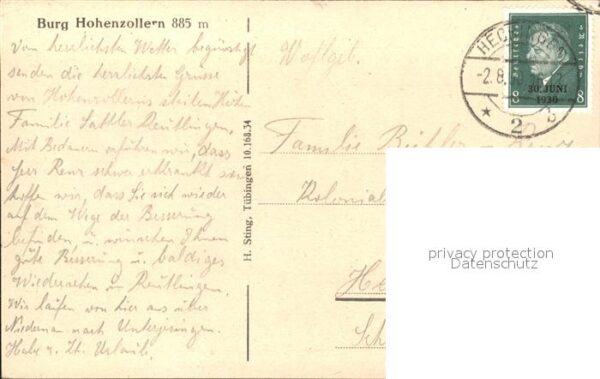 Burg Hohenzollern 885 m
Vom herrlichsten Wetter begünstigt
senden die herzlichsten Grüsse
von Hohenzollerns steilen Höhen
Familie Sattler Reutlingen.
Mit Bedauern erfuhren wir, dass
Herr Renz schwer erkrankt
hoffen wir, dass Sie sich wieder
auf dem Wege der Besserung
befinden, u. wünschen Ihnen
gute Besserung u. baldiges
Wiedersehen in Reutlingen.
Wir laufen von hier aus über
Niedernau nach Unterjesingen.
Habe z. Zt. Urlaub.
H. Sting, Tübingen 10.168.34
Familie
Kolonial
He
Sch
HECHINGEN
-2.8.
30. JUNI
1930
8 8
privacy protection
Datenschutz